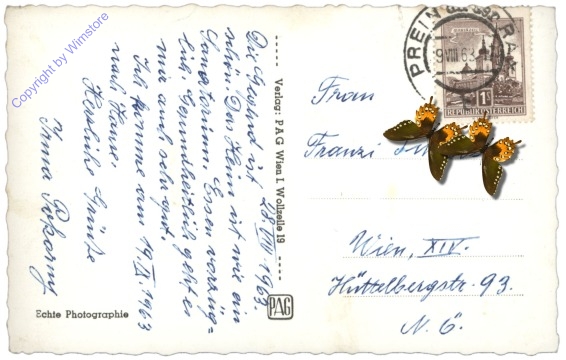 Copyright by Wimstore
28/VIII. 1963
Die Gegend ist
schön. Das Heim ist wie ein
Sanatorium. Essen vorzüg=
lich. Gesundheitlich geht es
mir auch sehr gut.
Ich komme am 19.IX.1963
nach Hause.
Herzliche Grüße
Irma Pokorny
Echte Photographie
Verlag: PAG Wien I. Wollzeile 19
PAG
PREIN
RAX
9.VIII.63
1S
REPUBLIK ÖSTERREICH
Frau
Franzi
Wien, XIV.
Hüttelbergstr. 93.
N. Ö.